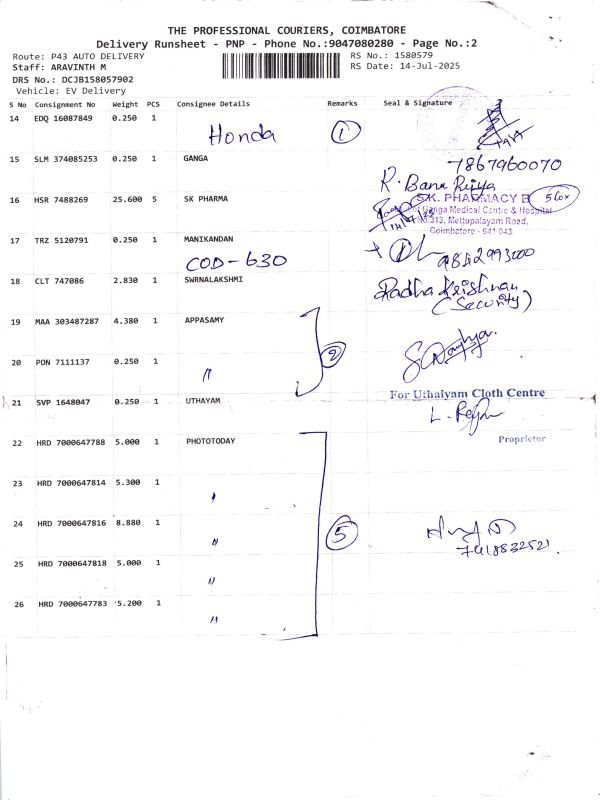 THE PROFESSIONAL COURIERS, COIMBATORE
Delivery Runsheet - PNP - Phone No.:9047080280 - Page No.:2
Route: P43 AUTO DELIVERY
RS No.: 1580579
Staff: ARAVINTH M
RS Date: 14-Jul-2025
DRS No.: DCJB158057902
Vehicle: EV Delivery
S No Consignment No Weight PCS Consignee Details Remarks Seal & Signature
14 EDQ 16087849 0.250 1
Honda 1
15 SLM 374085253 0.250 1 GANGA
7867960070
R. Banu Rijya
16 HSR 7488269 25.600 5 SK PHARMA
S.K. PHARMACY 5 Cox
Ganga Medical Centre & Hospital
Mettupalayam Road,
Coimbatore - 641 043
17 TRZ 5120791 0.250 1 MANIKANDAN
COD-630
9842993000
18 CLT 747086 2.830 1 SWRNALAKSHMI
Radha Krishnan
(Security)
19 MAA 303487287 4.380 1 APPASAMY
2
20 PON 7111137 0.250 1 "
21 SVP 1648047 0.250 1 UTHAYAM
For Uthaiyam Cloth Centre
Proprietor
22 HRD 7000647788 5.000 1 PHOTOTODAY
23 HRD 7000647814 5.300 1 "
24 HRD 7000647816 8.880 1 "
5
7418832521.
25 HRD 7000647818 5.000 1 "
26 HRD 7000647783 5.200 1 "